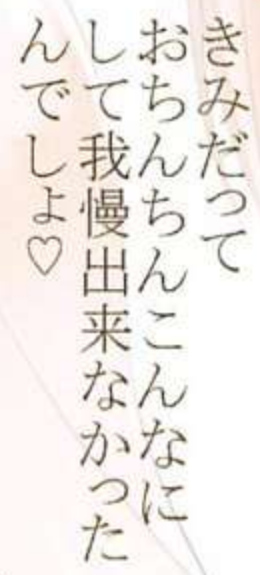 きみだって
おちんちんこんなに
して我慢出来なかった
んでしょ♡